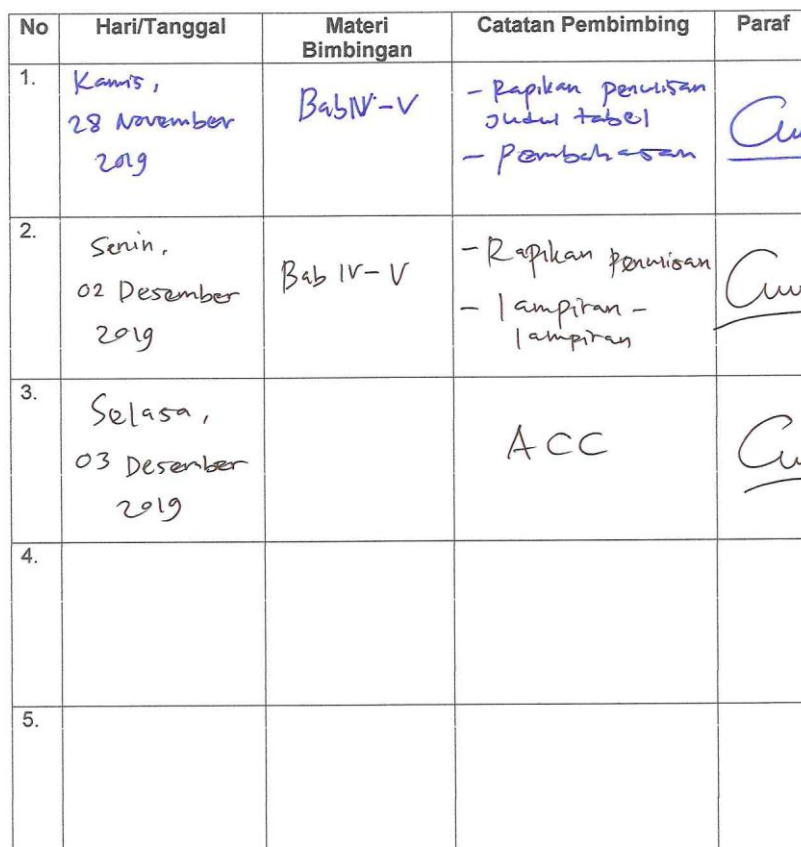 No Hari/Tanggal Materi Bimbingan Catatan Pembimbing Paraf
1.
Kamis,
28 November
2019
Bab IV - V
- Rapikan penulisan
Judul tabel
- Pembahasan
2.
Senin,
02 Desember
2019
Bab IV - V
- Rapikan penulisan
- lampiran -
lampiran
3.
Selasa,
03 Desember
2019
ACC
4.
5.